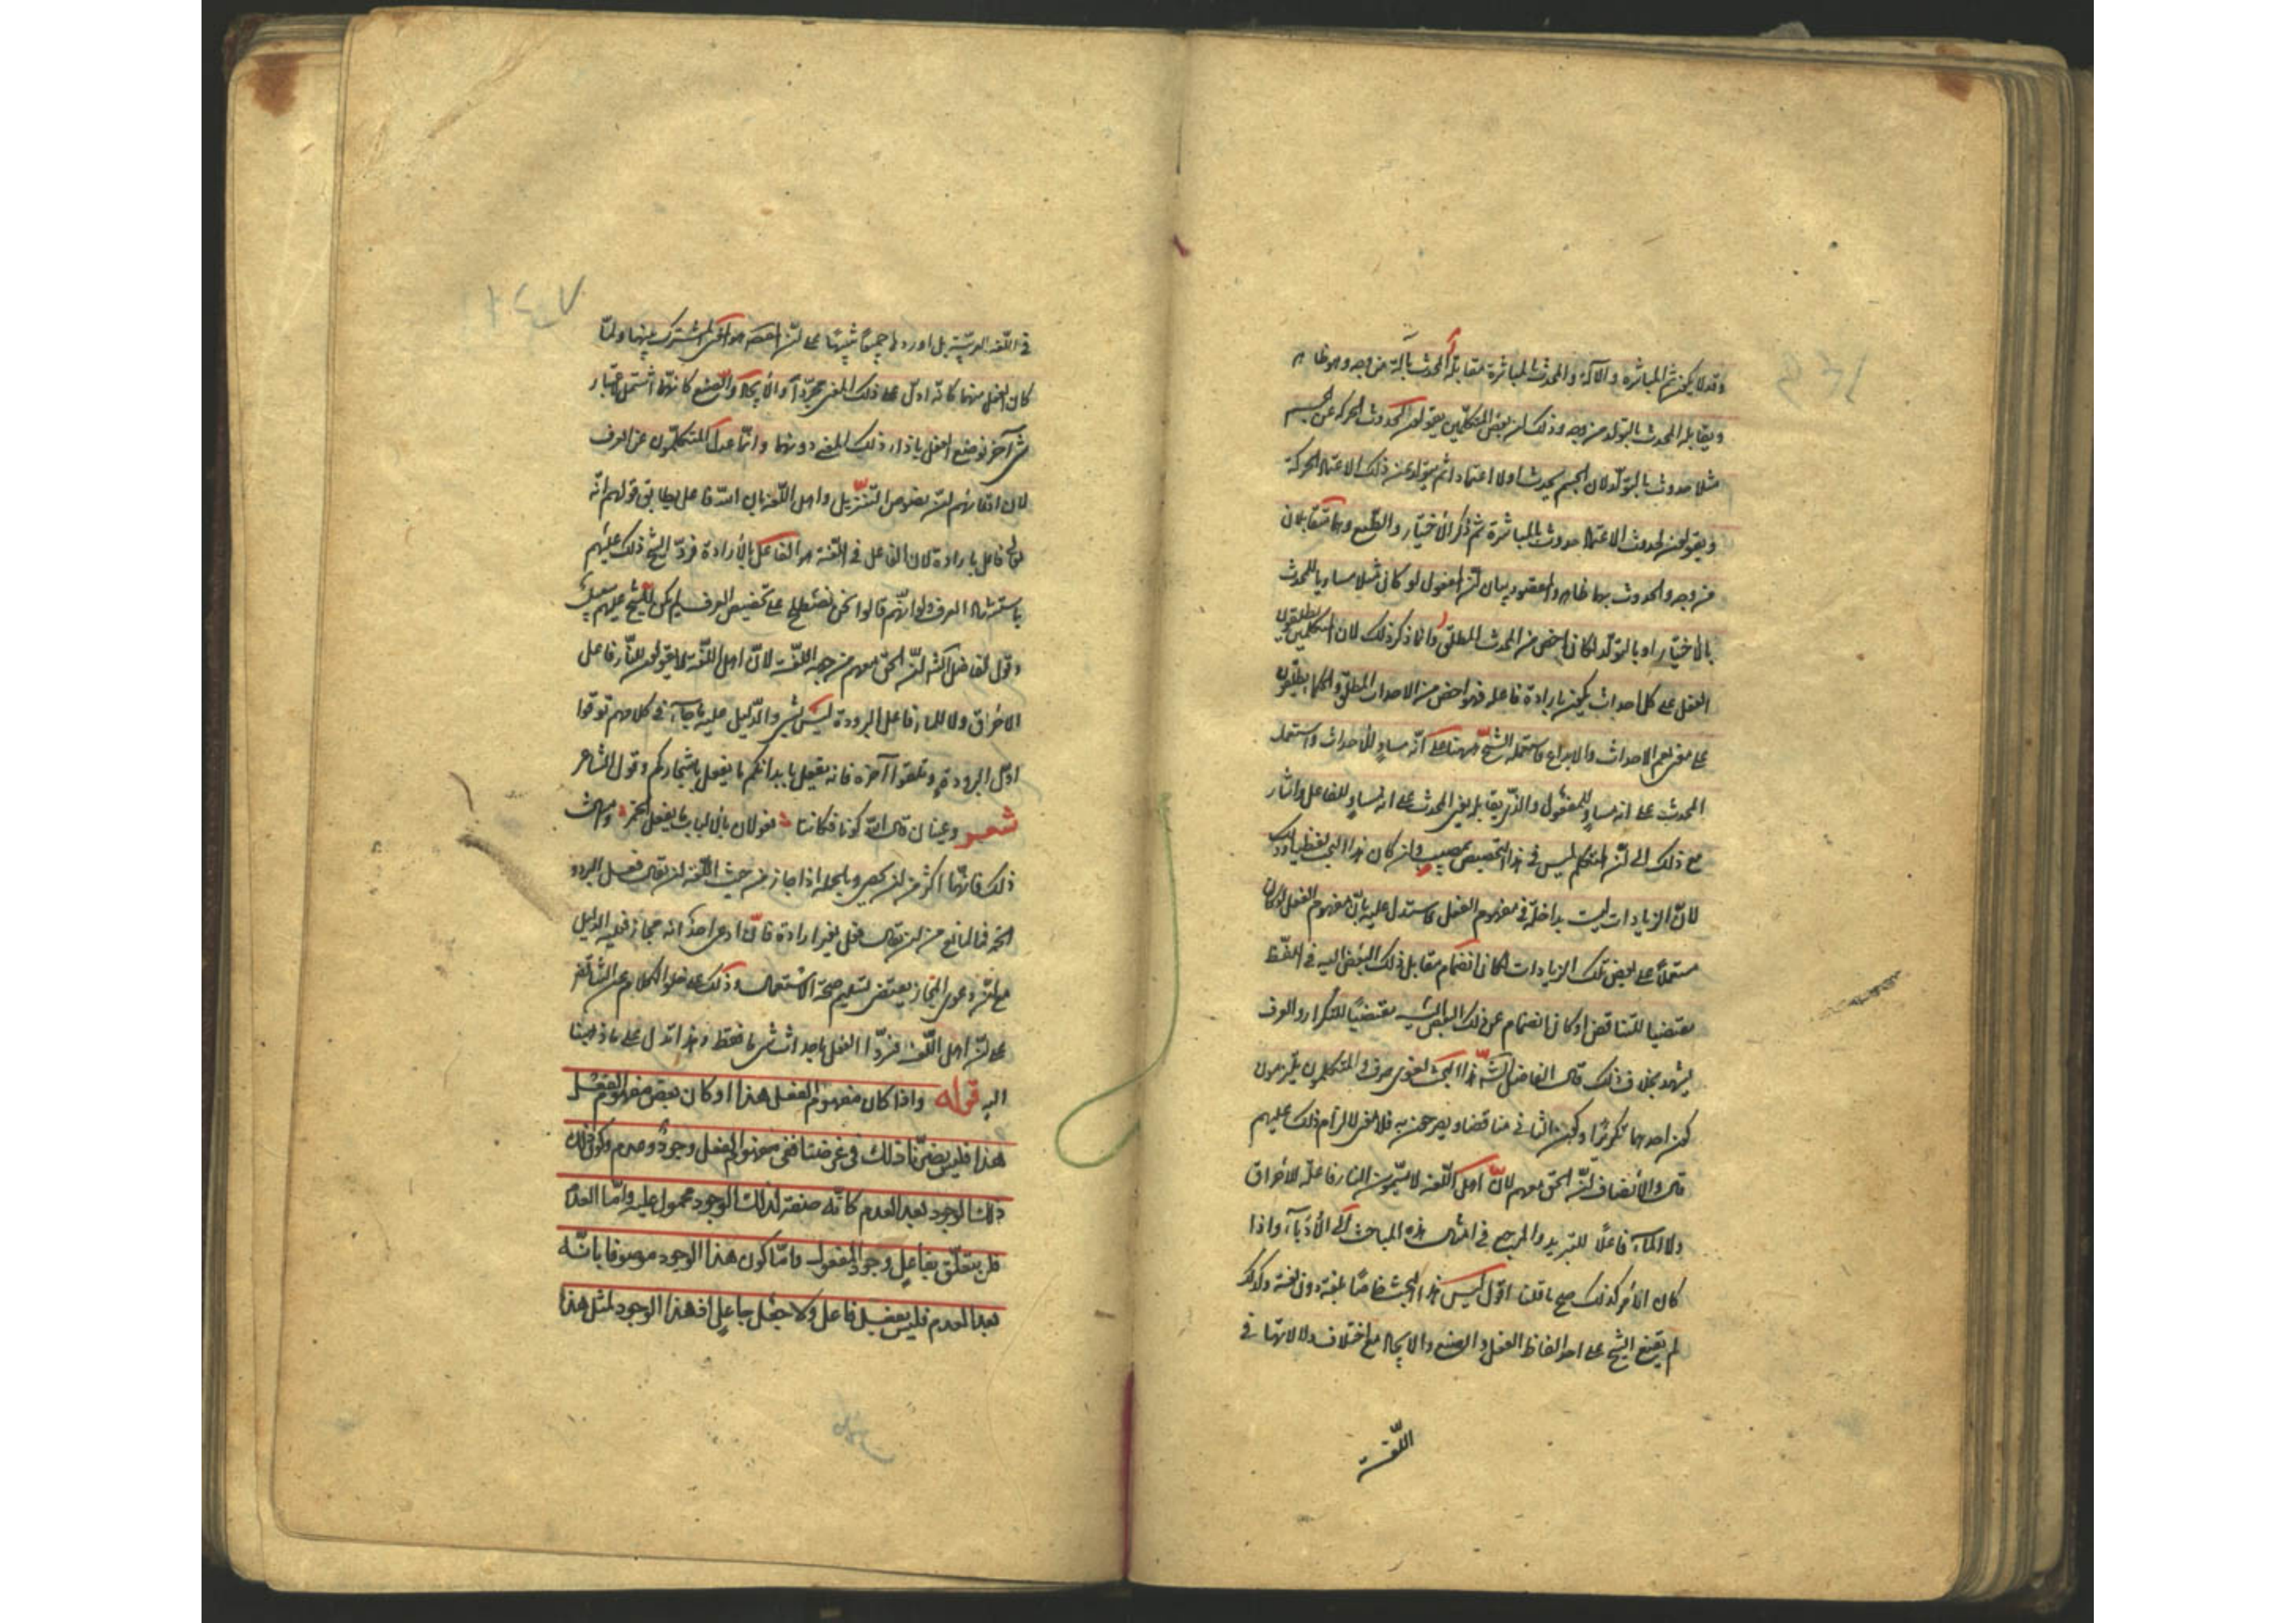 وقد لا يكون ثم المباشرة والآلة والمحدث بالمباشرة مقابله المحدث بآلة من وجه وهو ظاهر
ويقابله المحدث بالتولد من وجه وذلك لان بعض المتكلمين يقولون لحدوث الحركة عن الجسم
مثلا حدوث بالتولد لان الجسم يحدث اولا اعتمادا ثم يتولد عن ذلك الاعتماد الحركة
ويقولون لحدوث الاعتماد حدوث بالمباشرة ثم ذكر الاختيار والطبع وهما متقابلان
من وجه والحدوث بهما ظاهر والمقصود بيان ان المفعول لو كان مثلا مساويا للمحدث
بالاختيار او بالتولد لكان اخص من المحدث المطلق وانما ذكر ذلك لان المتكلمين يطلقون
الفعل على كل احداث يكون بارادة فاعله فهو اخص من الاحداث المطلق والحكماء يطلقونه
على معنى يعم الاحداث والابداع فاستعمله الشيخ ههنا على انه مساو للاحداث واستعمل
المحدث على انه مساو للمفعول والذي يقابله يعنى المحدث على انه مساو للفاعل واشار
مع ذلك الى ان المتكلم ليس في هذا التخصيص بمصيب وان كان هذا البحث لفظيا وذلك
لان الزيادات ليست بداخلة في مفهوم الفعل واستدل عليه بان مفهوم الفعل لو كان
مشتملا على بعض تلك الزيادات لكان انضمام مقابل ذلك البعض اليه في اللفظ
مقتضيا للتناقض او كان انضمام عين ذلك البعض اليه مقتضيا للتكرار والعرف
يشهد بخلاف ذلك قال الفاضل الشارح هذا البحث لغوى صرف والمتكلمون يلتزمون
كون احدهما تكريرا وكون الثاني مناقضا ويصرحون به فلا معنى لالزام ذلك عليهم
قال والانصاف ان الحق معهم لان اهل اللغة لا يسمون النار فاعلة للاحراق
ولا الماء فاعلا للتبريد والمرجع في امثال هذه المباحث الى الادباء واذا
كان الامر كذلك صح ما قلنا اقول ليس هذا البحث خاصا بلغة دون لغة ولذلك
لم يقنع الشيخ على احد الفاظ الفعل والصنع والايجاد مع اختلاف دلالاتها في
اللغة
في اللغة العربية بل اوردها جميعا تنبيها على ان المقصد هو المعنى المشترك بينها ولما
كان الفعل منها كانه ادل على ذلك المعنى مجردا والايجاد والصنع كانهما اشتمل باعتبار
شئ آخر فوضع الفعل بازاء ذلك المعنى دونهما وانما عدل المتكلمون عن العرف
لان ادعائهم ان نصوص التنزيل واهل اللغة بان الله فاعل يطابق قولهم انه
تعالى فاعل بارادة لان الفاعل في اللغة هو الفاعل بالارادة فرد الشيخ ذلك عليهم
باستشهاد العرف ولو انهم قالوا نحن نصطلح على تخصيص العرف لم يكن للشيخ عليهم سبيل
وقول الفاضل الشارح ان الحق معهم من جهة اللغة لان اهل اللغة لا يقولون للنار فاعل
الاحراق ولا للماء فاعل البرودة ليس بشئ والدليل عليه ما جاء في كلامهم توقوا
اول البرد وتلقوا آخره فانه يفعل بابدانكم ما يفعل باشجاركم وقول الشاعر
شعر وعينان قال الله كونا فكانتا فعولان بالالباب ما يفعل الخمر وامثال
ذلك فانها اكثر من ان يحصى وبالجملة اذا جاز من حيث اللغة ان يقال فعل البرد و
الخمر فما المانع من ان يقال فعل بغير ارادة فان ادعى احد انه مجاز فعليه الدليل
مع ان دعوى المجاز يقتضى تسليم صحة الاستعمال وذلك على خلو الكلام عن التناقض
على ان اهل اللغة فسروا الفعل باحداث شئ ما فقط وهذا تدل على ما ذهبنا
اليه قوله واذا كان مفهوم الفعل هذا او كان بعض مفهوم الفعل
هذا فليس يضرنا ذلك في غرضنا ففي مفهوم الفعل وجود وعدم وكون ذلك
ذلك الوجود بعد العدم كانه صفة لذلك الوجود محمول عليه واما العدم
فلن يتعلق بفاعل وجود المفعول واما كون هذا الوجود موصوفا بانه
بعد العدم فليس بفعل فاعل ولا جعل جاعل اذ هذا الوجود لمثل هذا